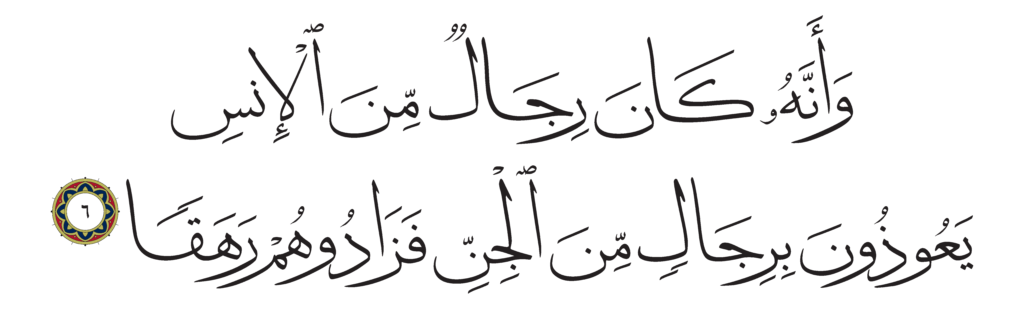 وَأَنَّهُۥ كَانَ رِجَالٌ مِّنَ ٱلْإِنسِ
يَعُوذُونَ بِرِجَالٍ مِّنَ ٱلْجِنِّ فَزَادُوهُمْ رَهَقًا ٦